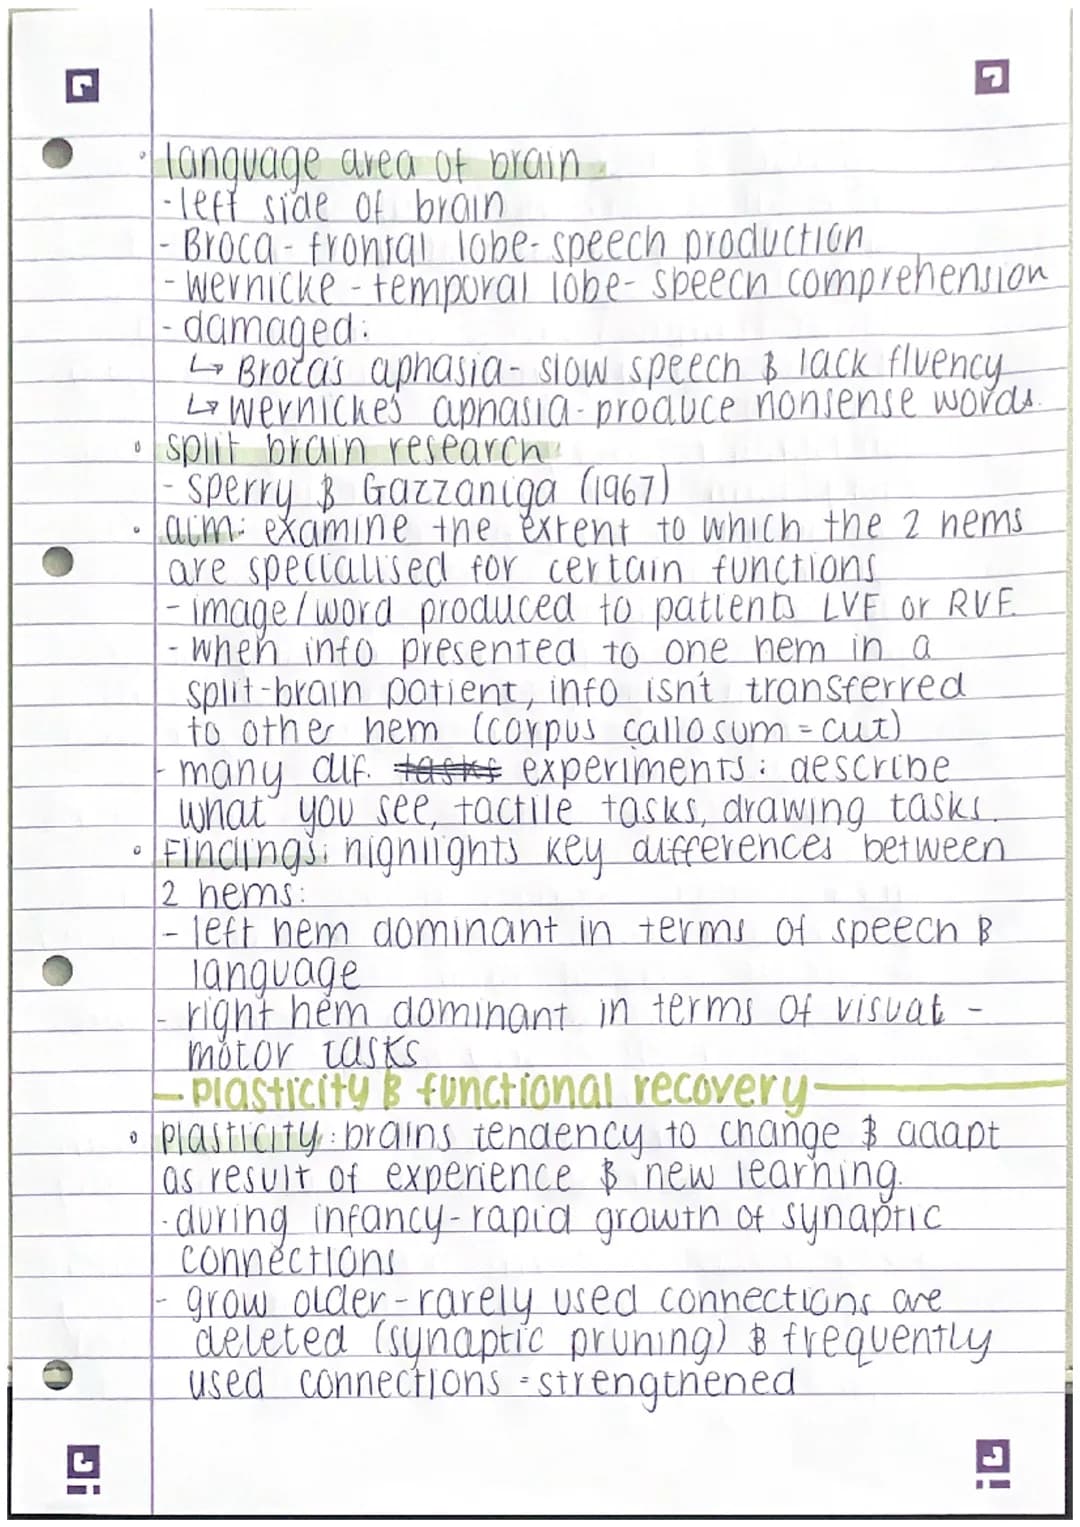 language area of brain
- left side of brain
- Broca - frontal lobe - speech production
- Wernicke - temporal lobe - speech comprehension
- damaged:
↳ Broca's aphasia - slow speech & lack fluency
↳ Wernicke's aphasia - produce nonsense words.
split brain research:
- Sperry & Gazzaniga (1967)
aim: examine the extent to which the 2 hems
are specialised for certain functions
- image/word produced to patients LVF or RVF.
- when info presented to one hem in a
split-brain patient, info isn't transferred
to other hem (corpus callosum = cut)
- many dif. tasks experiments: describe
what you see, tactile tasks, drawing tasks.
Findings: highlights key differences between
2 hems:
- left hem dominant in terms of speech &
language
- right hem dominant in terms of visual -
motor tasks
- Plasticity & functional recovery
Plasticity: brains tendency to change & adapt
as result of experience & new learning.
- during infancy - rapid growth of synaptic
connections
- grow older - rarely used connections are
deleted (synaptic pruning) & frequently
used connections = strengthened